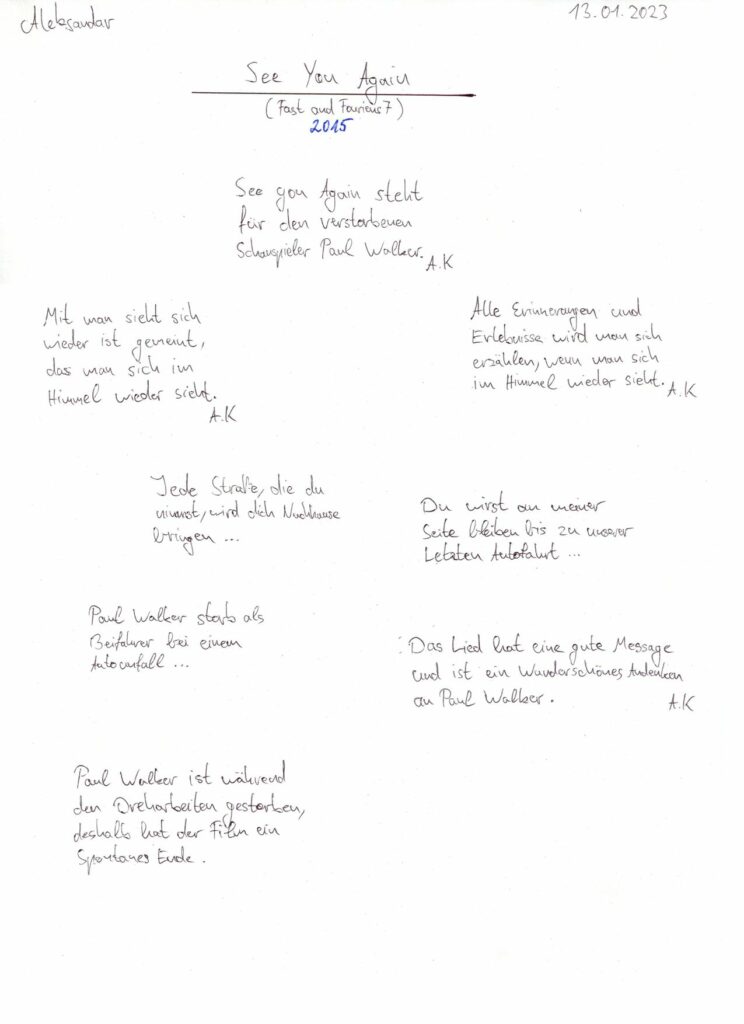 Aleksandar
13.01.2023
See You Again
(Fast and Fourieus 7)
2015
See you Again steht
für den verstorbenen
Schauspieler Paul Walker.
A.K
Mit man sieht sich
wieder ist gemeint,
das man sich im
Himmel wieder sieht.
A.K
Alle Erinnerungen und
Erlebnisse wird man sich
erzählen, wenn man sich
im Himmel wieder sieht.
A.K
Jede Straße, die du
nimmst, wird dich Nachhause
bringen ...
Du wirst an meiner
Seite bleiben bis zu unserer
Letzten Autofahrt ...
Paul Walker starb als
Beifahrer bei einem
Autounfall ...
Das Lied hat eine gute Message
und ist ein Wunderschönes Andenken
an Paul Walker.
A.K
Paul Walker ist während
den Dreharbeiten gestorben,
deshalb hat der Film ein
Spontanes Ende.